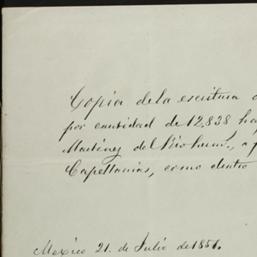 Copia de la escritura
por cantidad de 12,838
Martinez del Rio herm.ˢ, a
Capellanías, como dentro
Mexico 21. de Julio de 1851.